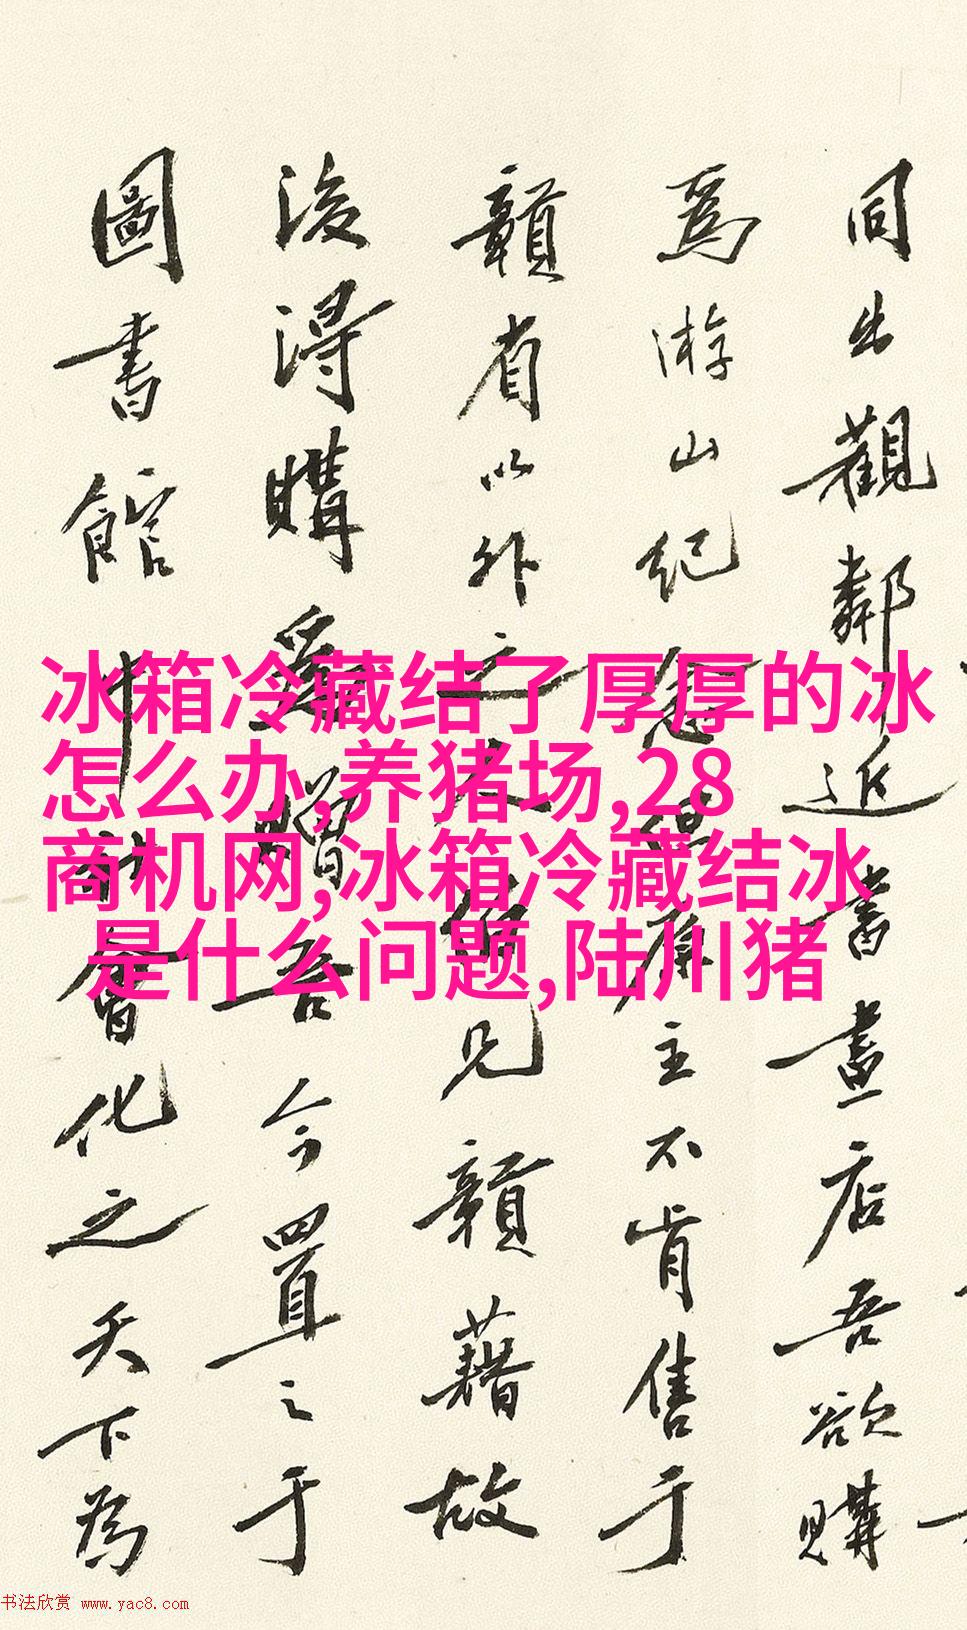 同出觀鄰近書畫店吾欲購
為游山紀念但主不肯售于
贛省以外之人見贛藉故
後得購爲贈吾今置之于
圖書館中會化之天下為
冰箱冷藏结了厚厚的冰
怎么办,养猪场,28
商机网,冰箱冷藏结冰
是什么问题,陆川猪
书法欣赏 www.yac8.com